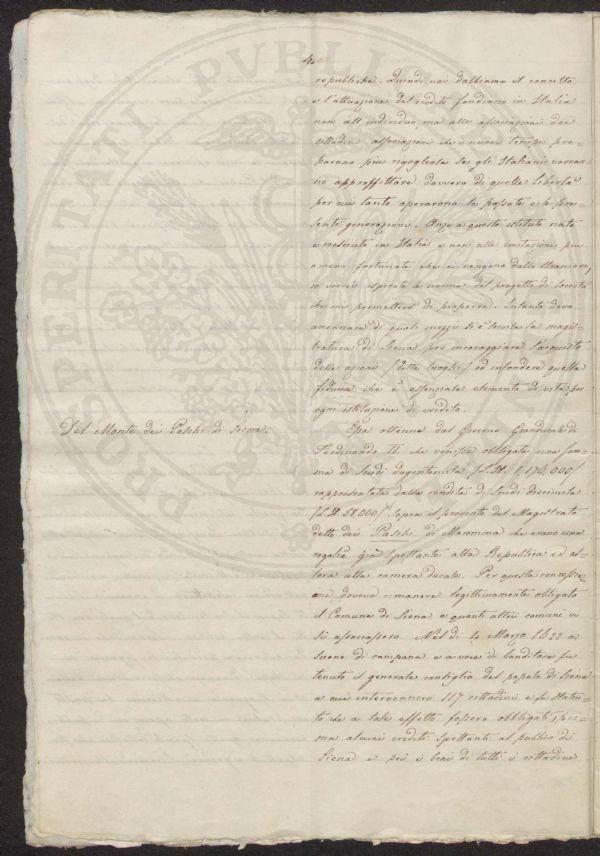 4
republiche. Quindi noi dobbiamo il concetto
e l'attuazione del credito fondiario in Italia
non all'individuo, ma alle associazioni dei
cittadini, associazioni che i nuovi tempi pre-
parano più rigogliose se gli Italiani vorran-
no approffittare davvero di quella libertà
per cui tanto operarono la passata e la pre-
sente generazione. Anzi a questo istituto nato
e cresciuto in Italia e non alle imitazioni più
o meno fortunate che ci vengono dallo straniero,
io vorrei ispirate le norme del progetto di società
che mi permetterò di proporre. Intanto devo
accennare di quali mezzi si è servita la magis-
tratura di Siena per incoraggiare l'acquisto
delle azioni (dette luoghi) ed infondere quella
fiducia che è essenziale elemento di vita, per
ogni istituzione di credito.
Del Monte dei Paschi di Siena.
Essa ottenne dal Governo Granducale di
Ferdinando II che venisse obbligata una som-
ma di Scudi dugentomila (L. It. 1,176,000)
rappresentata dalla rendita di Scudi diecimila
(L. It. 58.000) sopra il provento del Magistrato
detto dei Paschi di Maremma che erano una
regalia già spettante alla Republica ed al-
lora alla camera ducale. Per questa concessi-
one doveva rimanere legittimamente obligato
il Comune di Siena e quanti altri comuni vi
si associassero. Nel dì 4 Marzo 1622 a
suono di campana e a voce di banditore fu
tenuto il generale consiglio del popolo di Siena
a cui intervennero 117 cittadini e fu statui-
to che a tale effetto fossero obbligati, pri-
ma alcuni crediti spettanti al publico di
Siena e poi i beni di tutti i cittadini
PROSPERITATI PVBLI